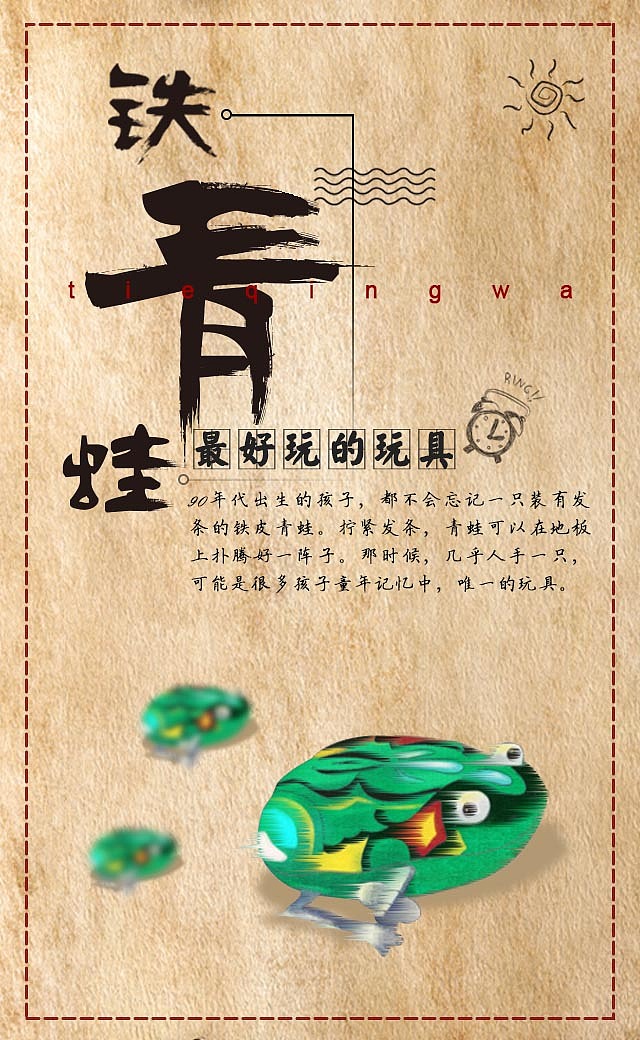 铁
青
蛙
tieqingwa
RING!!
最好玩的玩具
90年代出生的孩子，都不会忘记一只装有发
条的铁皮青蛙。拧紧发条，青蛙可以在地板
上扑腾好一阵子。那时候，几乎人手一只，
可能是很多孩子童年记忆中，唯一的玩具。